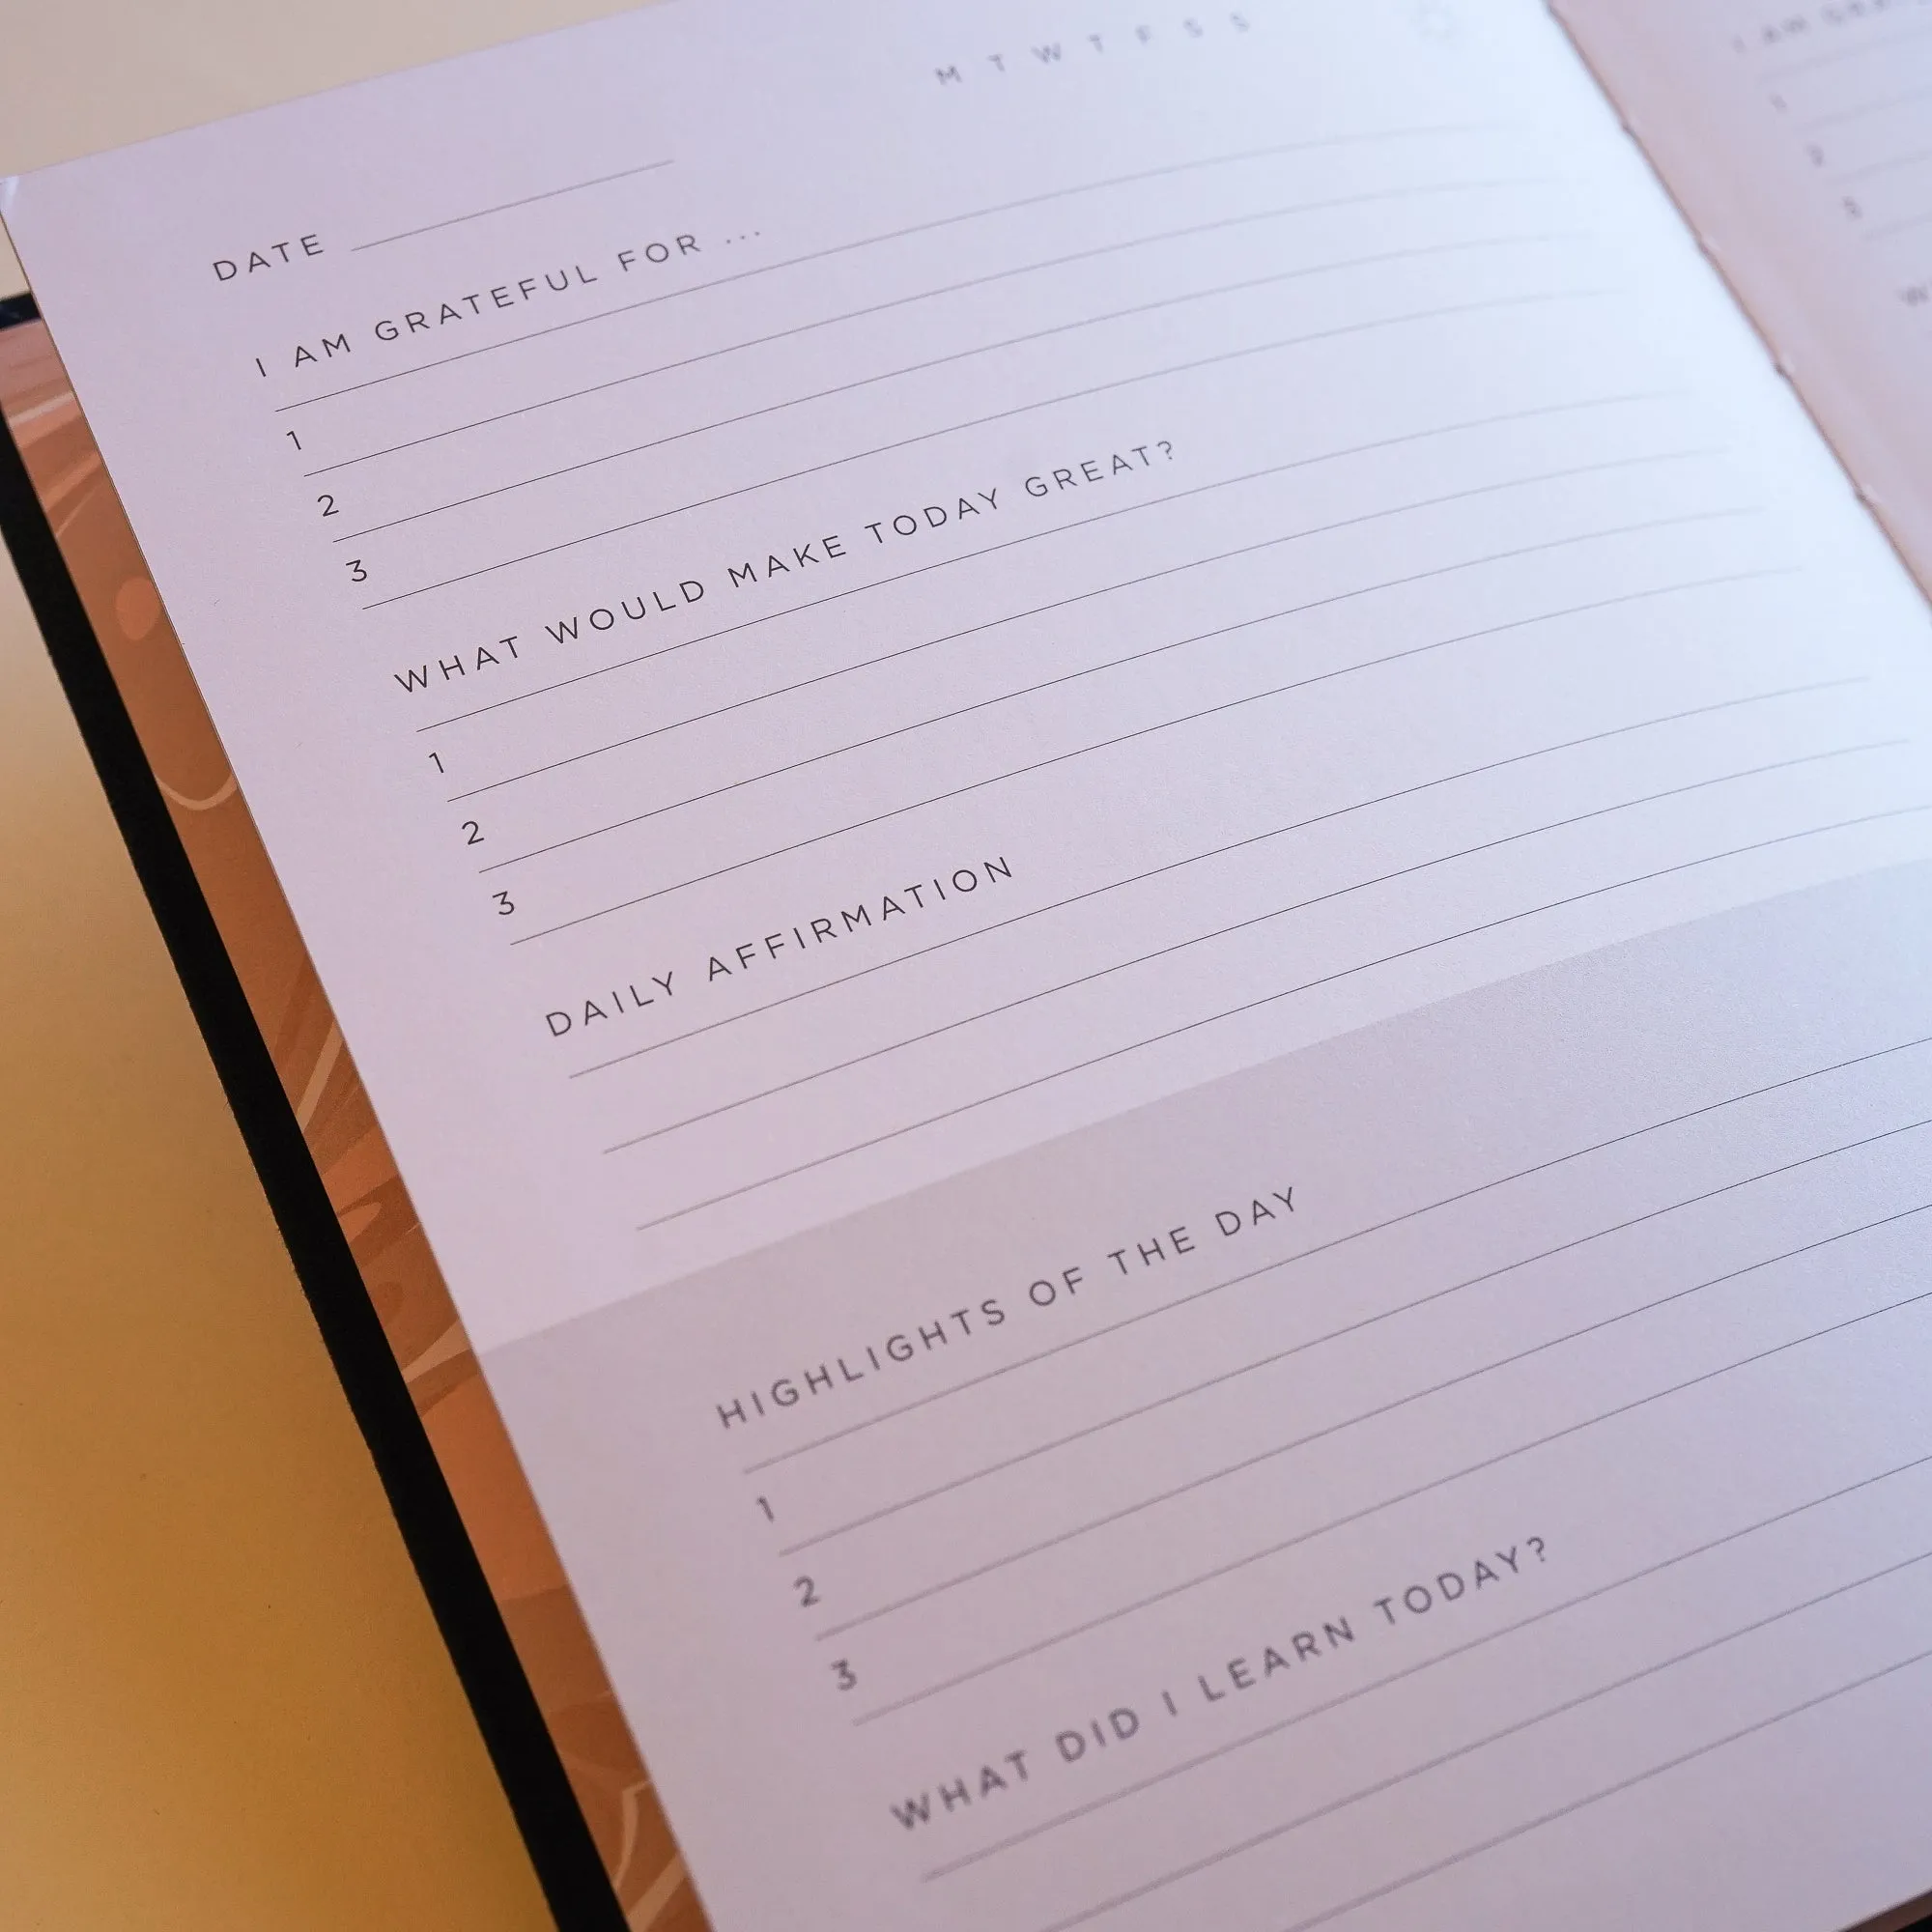 M T W T F S S
DATE
I AM GRATEFUL FOR ...
1
2
3
WHAT WOULD MAKE TODAY GREAT?
1
2
3
DAILY AFFIRMATION
HIGHLIGHTS OF THE DAY
1
2
3
WHAT DID I LEARN TODAY?